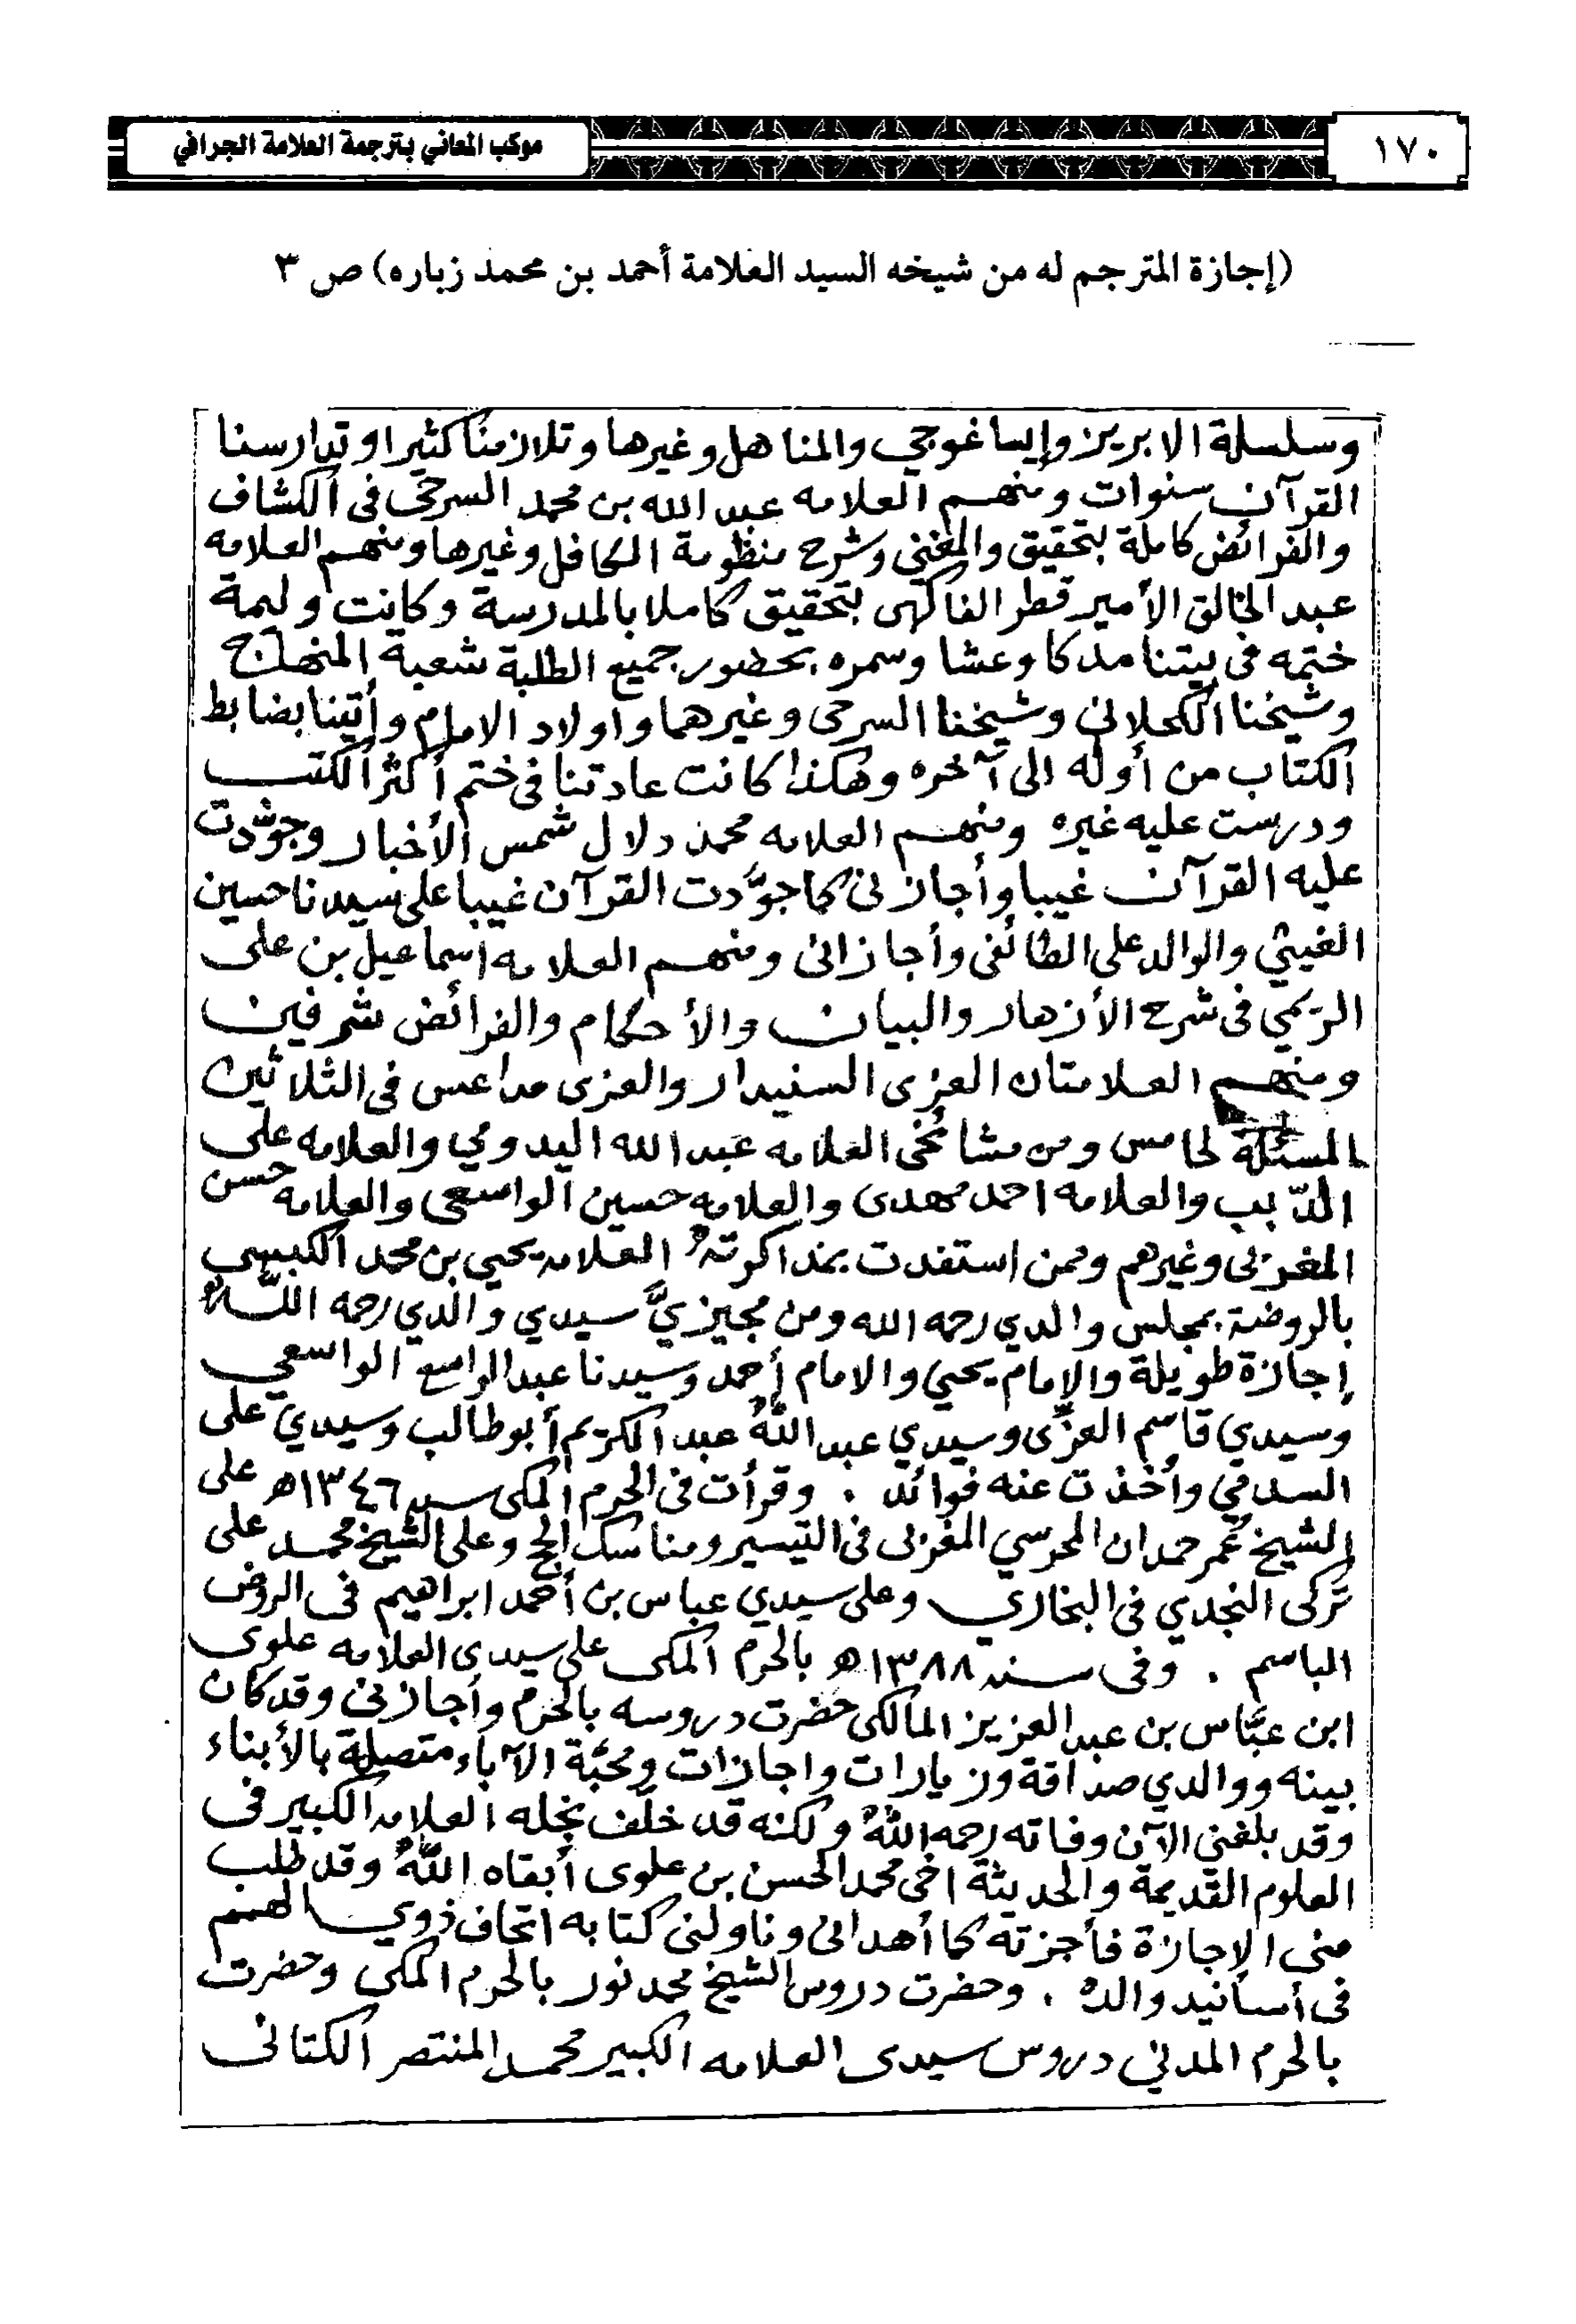 ١٧٠
موكب المعاني بترجمة العلامة الجرافي
(إجازة المترجم له من شيخه السيد العلامة أحمد بن محمد زباره) ص ٣
وسلسلة الابريز وإيساغوجي والمناهل وغيرها وتلازمنا كثيرا وتدارسنا
القرآن سنوات ومنهم العلامه عبد الله بن محمد السرحي في الكشاف
والفرائض كاملة بتحقيق والمغني وشرح منظومة الكافل وغيرها ومنهم العلامه
عبد الخالق الأمير قطر الفاكهى بتحقيق كاملا بالمدرسة وكانت وليمة
ختمه في بيتنا مدكا وعشا وسمره بحضور جميع الطلبة شعبة المنهاج
وشيخنا الكحلاني وشيخنا السرحى وغيرهما واولاد الامام وأتينا بضابط
الكتاب من أوله الى آخره وهكذا كانت عادتنا في ختم أكثر الكتب
ودرست عليه غيره ومنهم العلامه محمد دلال شمس الأخبار وجوّدت
عليه القرآن غيبا وأجازنى كما جوّدت القرآن غيبا على سيدنا حسين
الغيثي والوالد على الطائفى وأجازانى ومنهم العلامه اسماعيل بن على
الريمي في شرح الأزهار والبيان والأحكام والفرائض شرفين
ومنهم العلامتان العزى السنيدار والعزى مداعس في الثلاثين
المسئلة لخامس ومن مشائخى العلامه عبد الله اليدومي والعلامه على
الدّبب والعلامه احمد مهدى والعلامه حسين الواسعى والعلامه حسن
المغربى وغيرهم وممن استفدت بمذاكرته العلامه يحيى بن محمد الكبسي
بالروضة بمجلس والدي رحمه الله ومن مجيزيَّ سيدي والدي رحمه اللّه
إجازة طويلة والإمام يحيى والامام أحمد وسيدنا عبد الواسع الواسعي
وسيدي قاسم العزّى وسيدي عبد الله عبد الكريم أبو طالب وسيدي على
السدمي وأخذت عنه فوائد . وقرأت في الحرم المكى سنه ١٣٤٦ه على
الشيخ عُمر حمدان المحرسي المغربى في التيسير ومناسك الحج وعلى الشيخ محمد على
تركى النجدي في البخاري وعلى سيدي عباس بن أحمد ابراهيم في الروض
الباسم . وفى سنه ١٣٨٨ه بالحرم المكى على سيدى العلامه علوى
ابن عبّاس بن عبد العزيز المالكى حضرت دروسه بالحرم وأجازنى وقد كان
بينه ووالدي صداقة وزيارات واجازات ومحبّة الآباء متصلة بالأبناء
وقد بلغنى الآن وفاته رحمه اللهُ ولكنه قد خلّف نجله العلامه الكبير في
العلوم القديمة والحديثة اخى محمد الحسن بن علوى أبقاه اللهُ وقد طلب
منى الإجازة فأجزته كما أهدانى وناولنى كتابه اتحاف ذوي الهمم
في أسانيد والده . وحضرت دروس الشيخ محمد نور بالحرم المكى وحضرت
بالحرم المدني دروس سيدى العلامه الكبير محمد المنتصر الكتانى